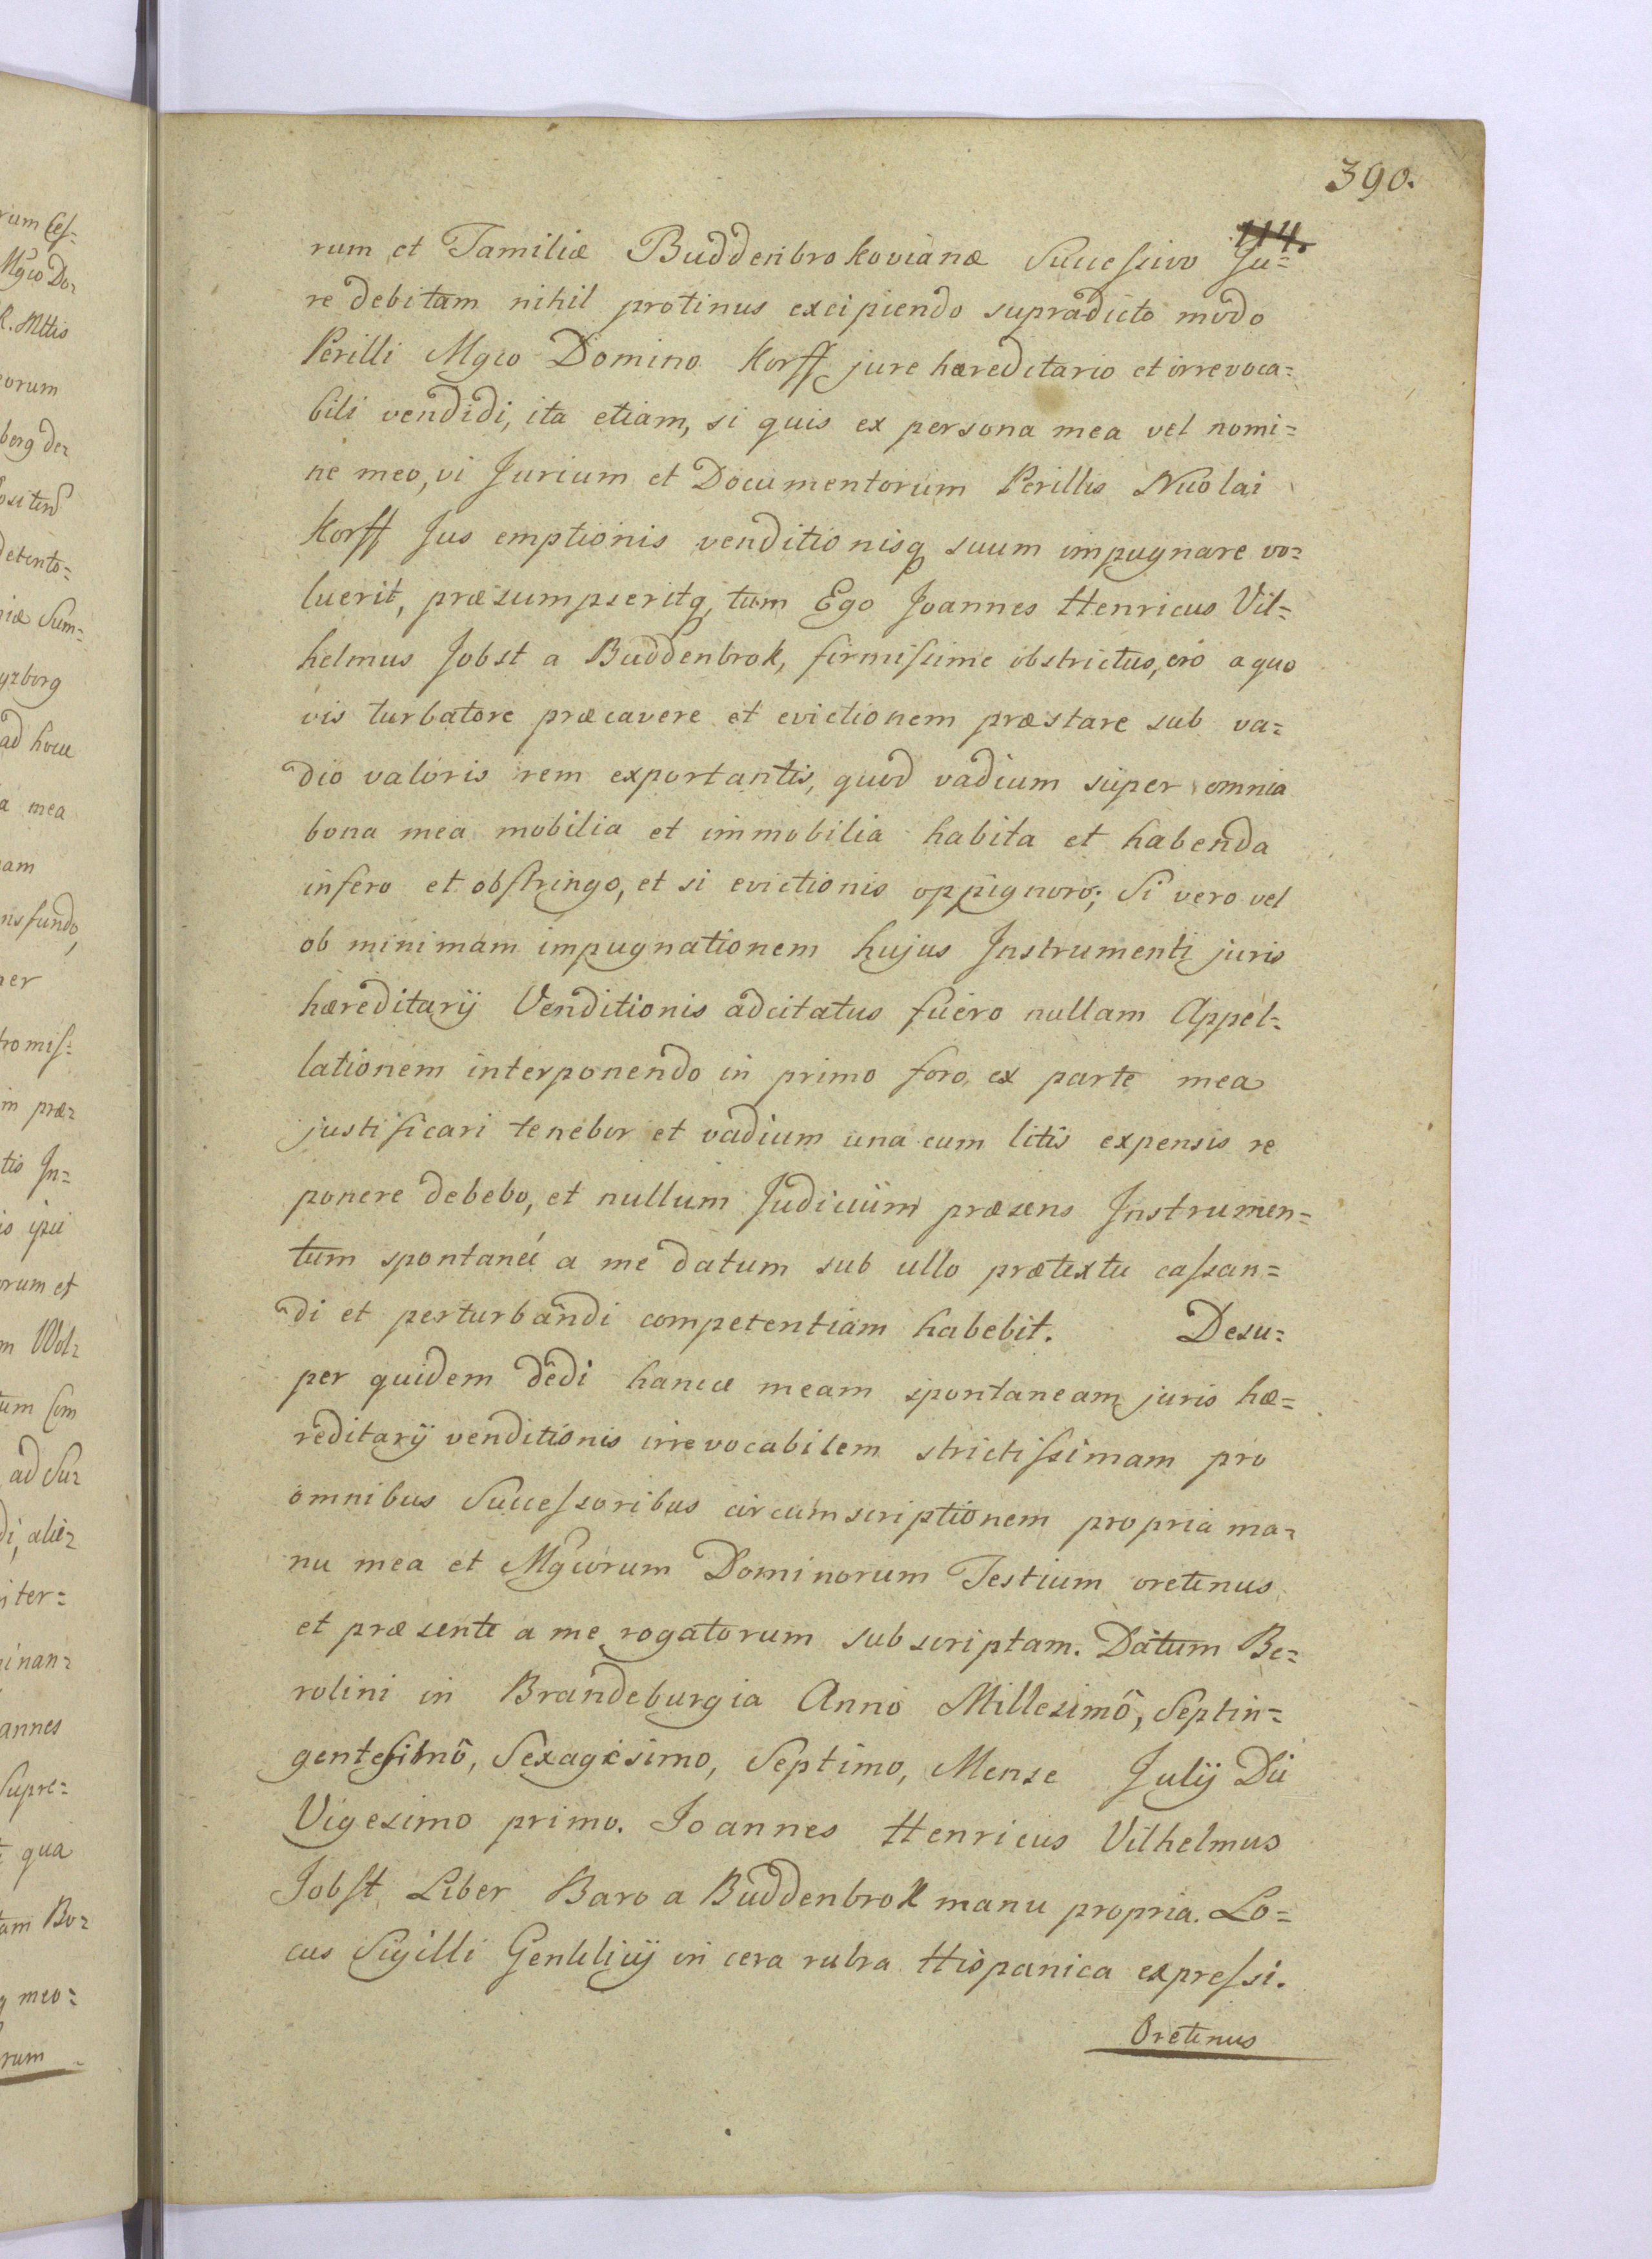 390.
114.
rum et Familiæ Buddenbrokovianæ Successivo Ju=
re debitam nihil protinus excipiendo supradicto modo
Perilli Mgco Domino Korff jure hæreditario et irrevoca=
bili vendidi, ita etiam, si quis ex persona mea vel nomi=
ne meo, vi Jurium et Documentorum Perillis Nicolai
Korff Jus emptionis venditionisq suum impugnare vo=
luerit, præsumpseritq, tum Ego Joannes Henricus Vil=
helmus Jobst a Buddenbrok, firmissime obstrictus, ero a quo
vis turbatore præcavere et evictionem præstare sub va=
dio valoris rem exportantis, quod vadium super omnia
bona mea mobilia et immobilia habita et habenda
infero et obstringo, et si evictionis oppignoro; Si vero vel
ob minimam impugnationem hujus Instrumenti juris
hæreditarij Venditionis adcitatus fuero nullam Appel=
lationem interponendo in primo foro ex parte mea
justificari tenebor et vadium una cum litis expensis re
ponere debebo, et nullum Judicium præsens Instrumen=
tum spontanei a me datum sub ullo prætextu cassan=
di et perturbandi competentiam habebit. Desu=
per quidem dedi hance meam spontaneam juris hæ=
reditarij venditionis irrevocabilem strictissimam pro
omnibus Successoribus circumscriptionem propria ma=
nu mea et Mgcorum Dominorum Testium oretenus
et præsente a me rogatorum subscriptam. Datum Be=
rolini in Brandeburgia Anno Millesimô, Septin=
gentesimô, Sexagesimo, Septimo, Mense Julij Dii
Vigesimo primo. Joannes Henricus Vilhelmus
Jobst Liber Baro a Buddenbrok manu propria. Lo=
cus Sigilli Gentilicij in cera rubra Hispanica expressi.
Oretenus